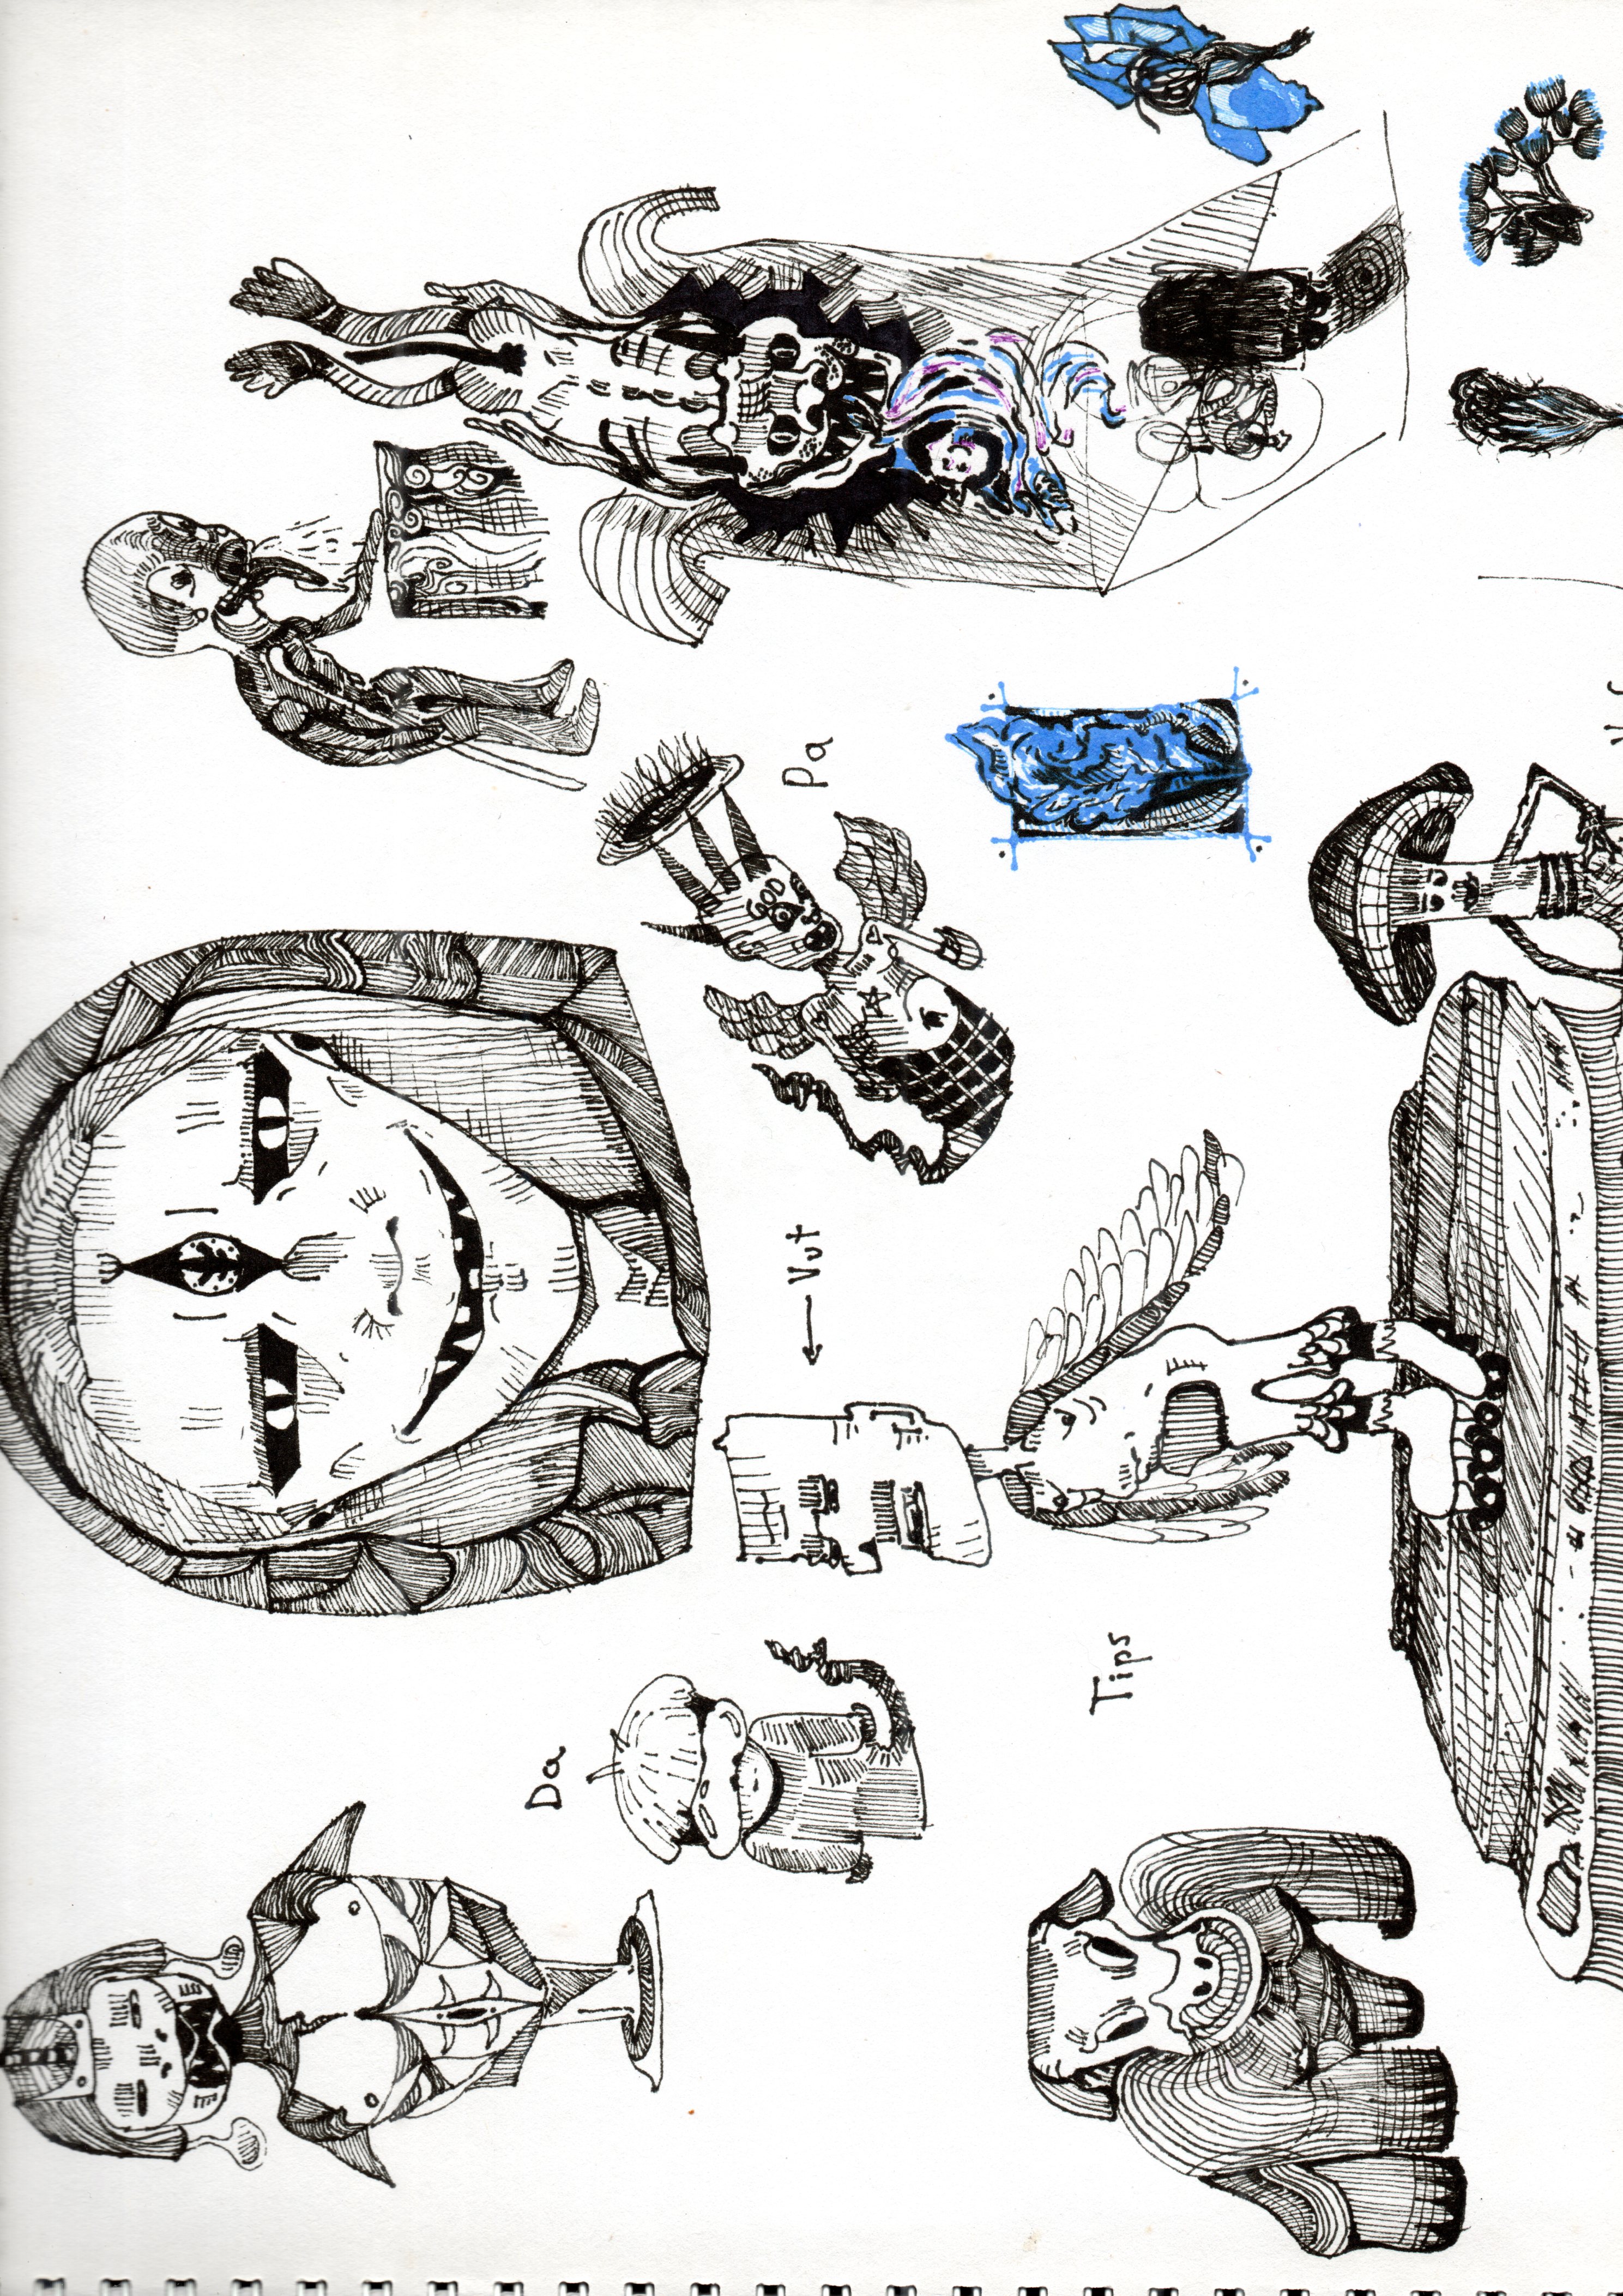 Da
← Vut
Pa
Tips